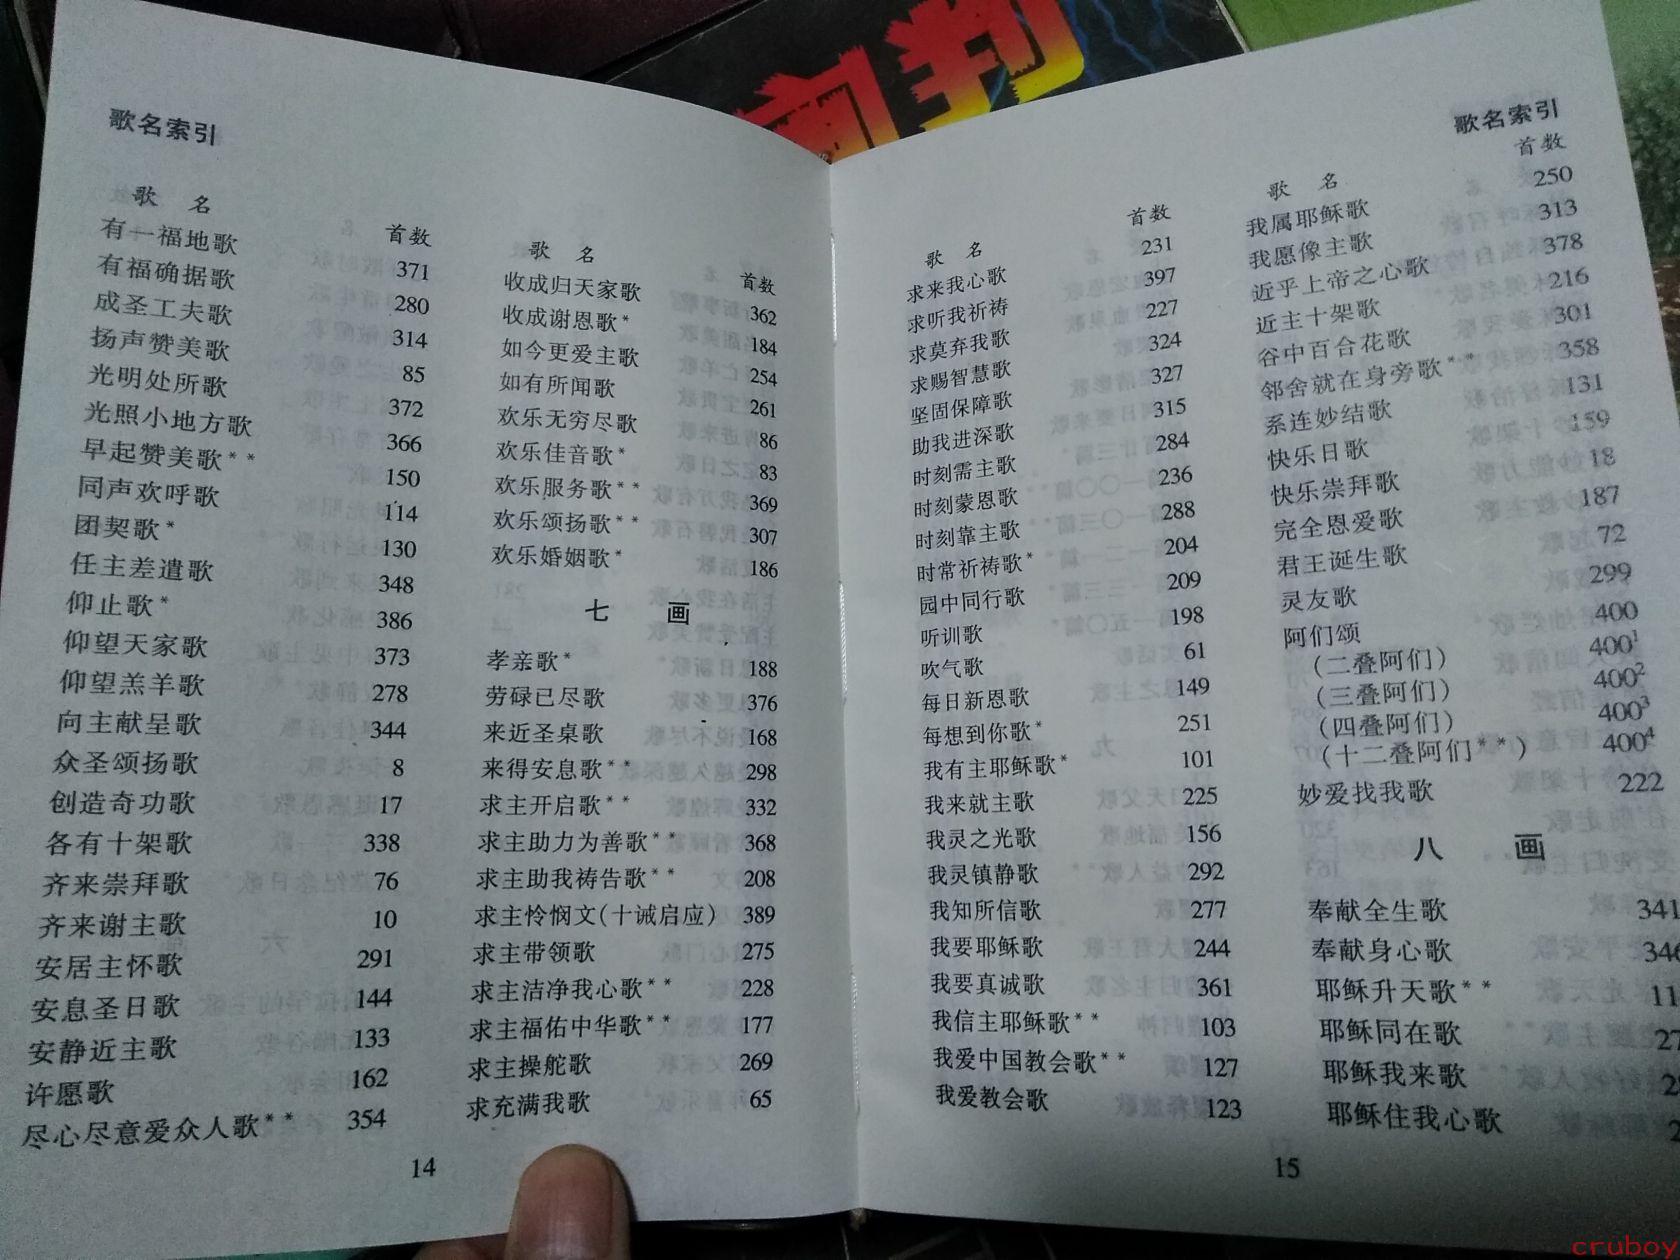 歌名索引
歌 名 首数
有一福地歌 371
有福确据歌 280
成圣工夫歌 314
扬声赞美歌 85
光明处所歌 372
光照小地方歌 366
早起赞美歌** 150
同声欢呼歌 114
团契歌* 130
任主差遣歌 348
仰止歌* 386
仰望天家歌 373
仰望羔羊歌 278
向主献呈歌 344
众圣颂扬歌 8
创造奇功歌 17
各有十架歌 338
齐来崇拜歌 76
齐来谢主歌 10
安居主怀歌 291
安息圣日歌 144
安静近主歌 133
许愿歌 162
尽心尽意爱众人歌** 354
歌 名 首数
收成归天家歌 362
收成谢恩歌* 184
如今更爱主歌 254
如有所闻歌 261
欢乐无穷尽歌 86
欢乐佳音歌* 83
欢乐服务歌** 369
欢乐颂扬歌** 307
欢乐婚姻歌* 186
七 画
孝亲歌* 188
劳碌已尽歌 376
来近圣桌歌 168
来得安息歌** 298
求主开启歌** 332
求主助力为善歌** 368
求主助我祷告歌** 208
求主怜悯文(十诫启应) 389
求主带领歌 275
求主洁净我心歌** 228
求主福佑中华歌** 177
求主操舵歌 269
求充满我歌 65
14
歌名索引
歌 名 首数
求来我心歌 231
求听我祈祷 397
求莫弃我歌 227
求赐智慧歌 324
坚固保障歌 327
助我进深歌 315
时刻需主歌 284
时刻蒙恩歌 236
时刻靠主歌 288
时常祈祷歌* 204
园中同行歌 209
听训歌 198
吹气歌 61
每日新恩歌 149
每想到你歌* 251
我有主耶稣歌* 101
我来就主歌 225
我灵之光歌 156
我灵镇静歌 292
我知所信歌 277
我要耶稣歌 244
我要真诚歌 361
我信主耶稣歌** 103
我爱中国教会歌** 127
我爱教会歌 123
歌 名 首数
我属耶稣歌 250
我愿像主歌 313
近乎上帝之心歌 378
近主十架歌 216
谷中百合花歌 301
邻舍就在身旁歌** 358
系连妙结歌 131
快乐日歌 159
快乐崇拜歌 18
完全恩爱歌 187
君王诞生歌 72
灵友歌 299
阿们颂 400
(二叠阿们) 400¹
(三叠阿们) 400²
(四叠阿们) 400³
(十二叠阿们**) 400⁴
妙爱找我歌 222
八 画
奉献全生歌 341
奉献身心歌 346
耶稣升天歌**
耶稣同在歌
耶稣我来歌
耶稣住我心歌
15
判
cruboy